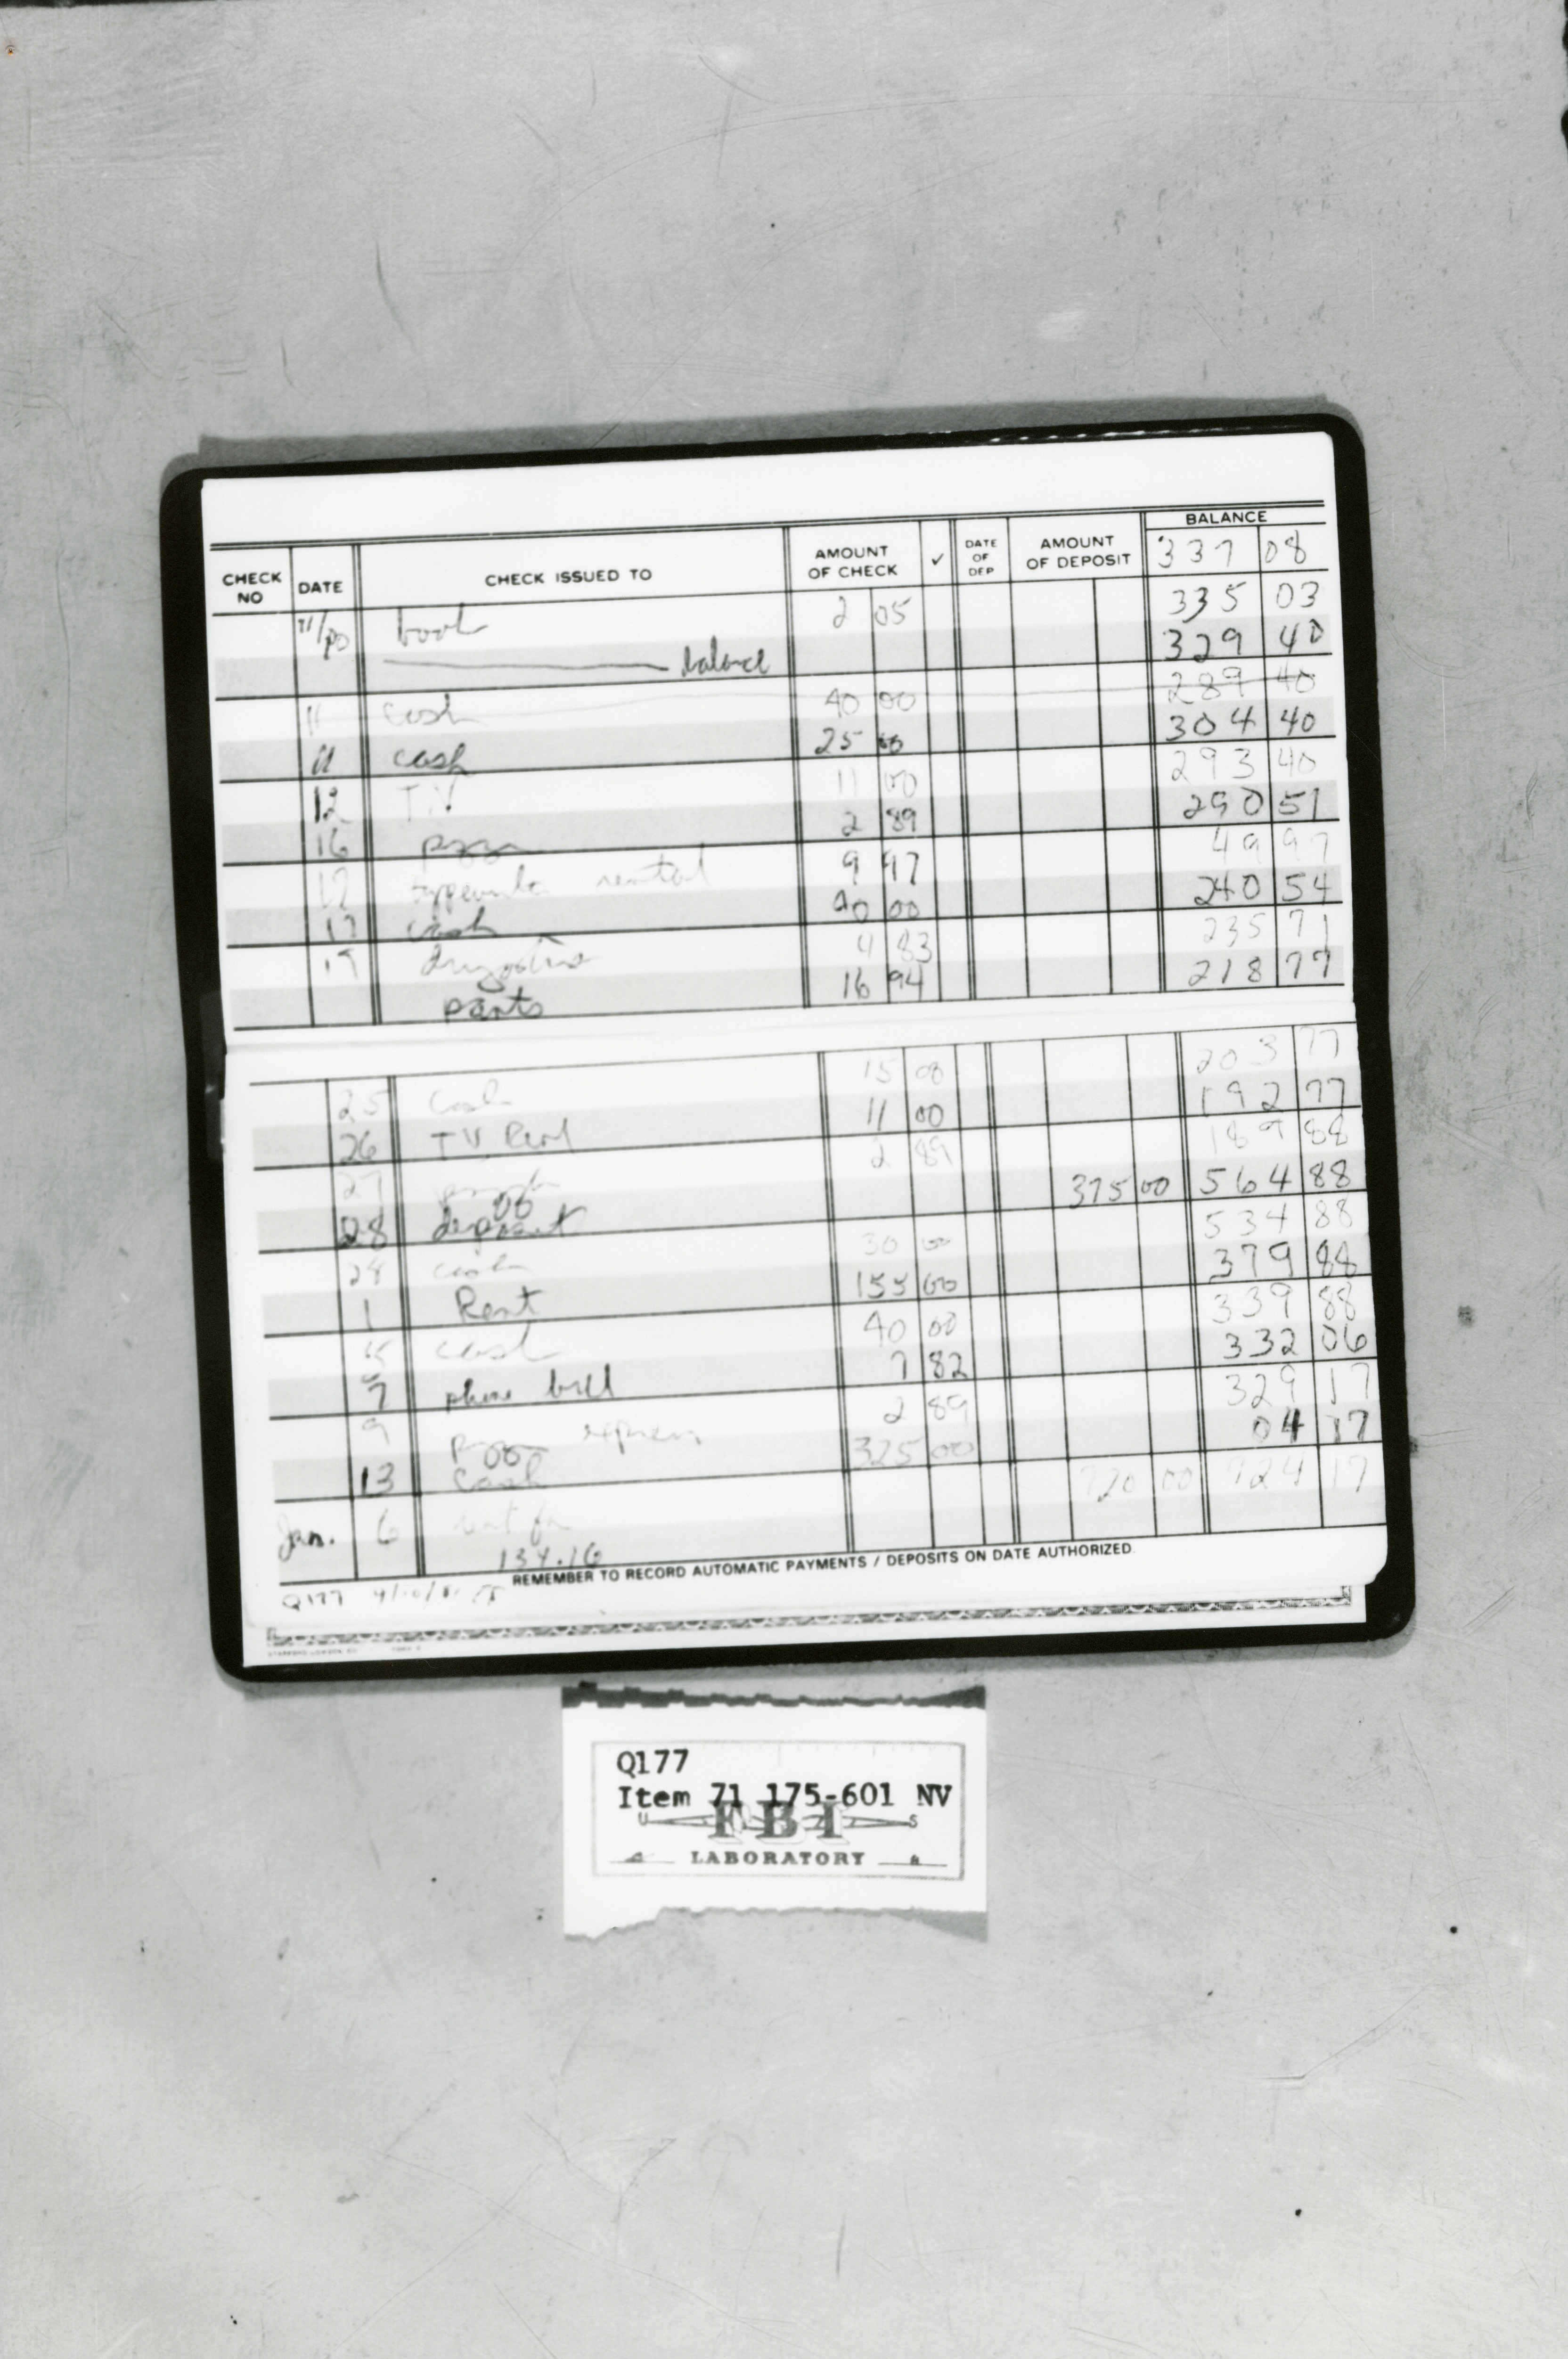 CHECK NO DATE CHECK ISSUED TO AMOUNT OF CHECK ✓ DATE OF DEP AMOUNT OF DEPOSIT BALANCE
337 08
11/80 book 2 05 335 03
balance 329 40
11 cash 40 00 289 40
11 cash 25 00 304 40
12 T.V 11 00 293 40
16 pizza 2 89 290 51
17 typewriter rental 9 97 49 97
17 cash 40 00 240 54
19 drugstore 4 83 235 71
pants 16 94 218 77
25 cash 15 00 203 77
26 TV Rent 11 00 192 77
27 2 89 189 88
28 deposit 375 00 564 88
28 cash 30 00 534 88
1 Rent 155 00 379 88
5 cash 40 00 339 88
7 phone bill 7 82 332 06
9 2 89 329 17
13 cash 325 00 04 17
Jan. 6 720 00 724 17
134.16
REMEMBER TO RECORD AUTOMATIC PAYMENTS / DEPOSITS ON DATE AUTHORIZED.
Q177
Q177
Item 71 175-601 NV
U S
FBI
LABORATORY